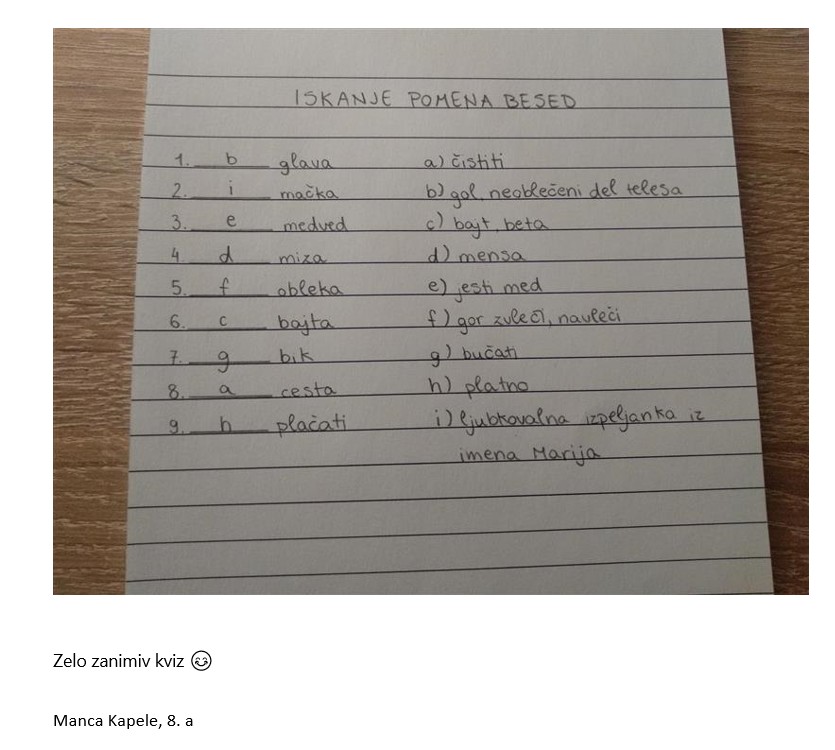 ISKANJE POMENA BESED
1. b glava a) čistiti
2. i mačka b) gol, neoblečeni del telesa
3. e medved c) bajt, beta
4. d miza d) mensa
5. f obleka e) jesti med
6. c bajta f) gor zvleči, navleči
7. g bik g) bučati
8. a cesta h) platno
9. h plačati i) ljubkovalna izpeljanka iz
imena Marija
Zelo zanimiv kviz 😊
Manca Kapele, 8. a